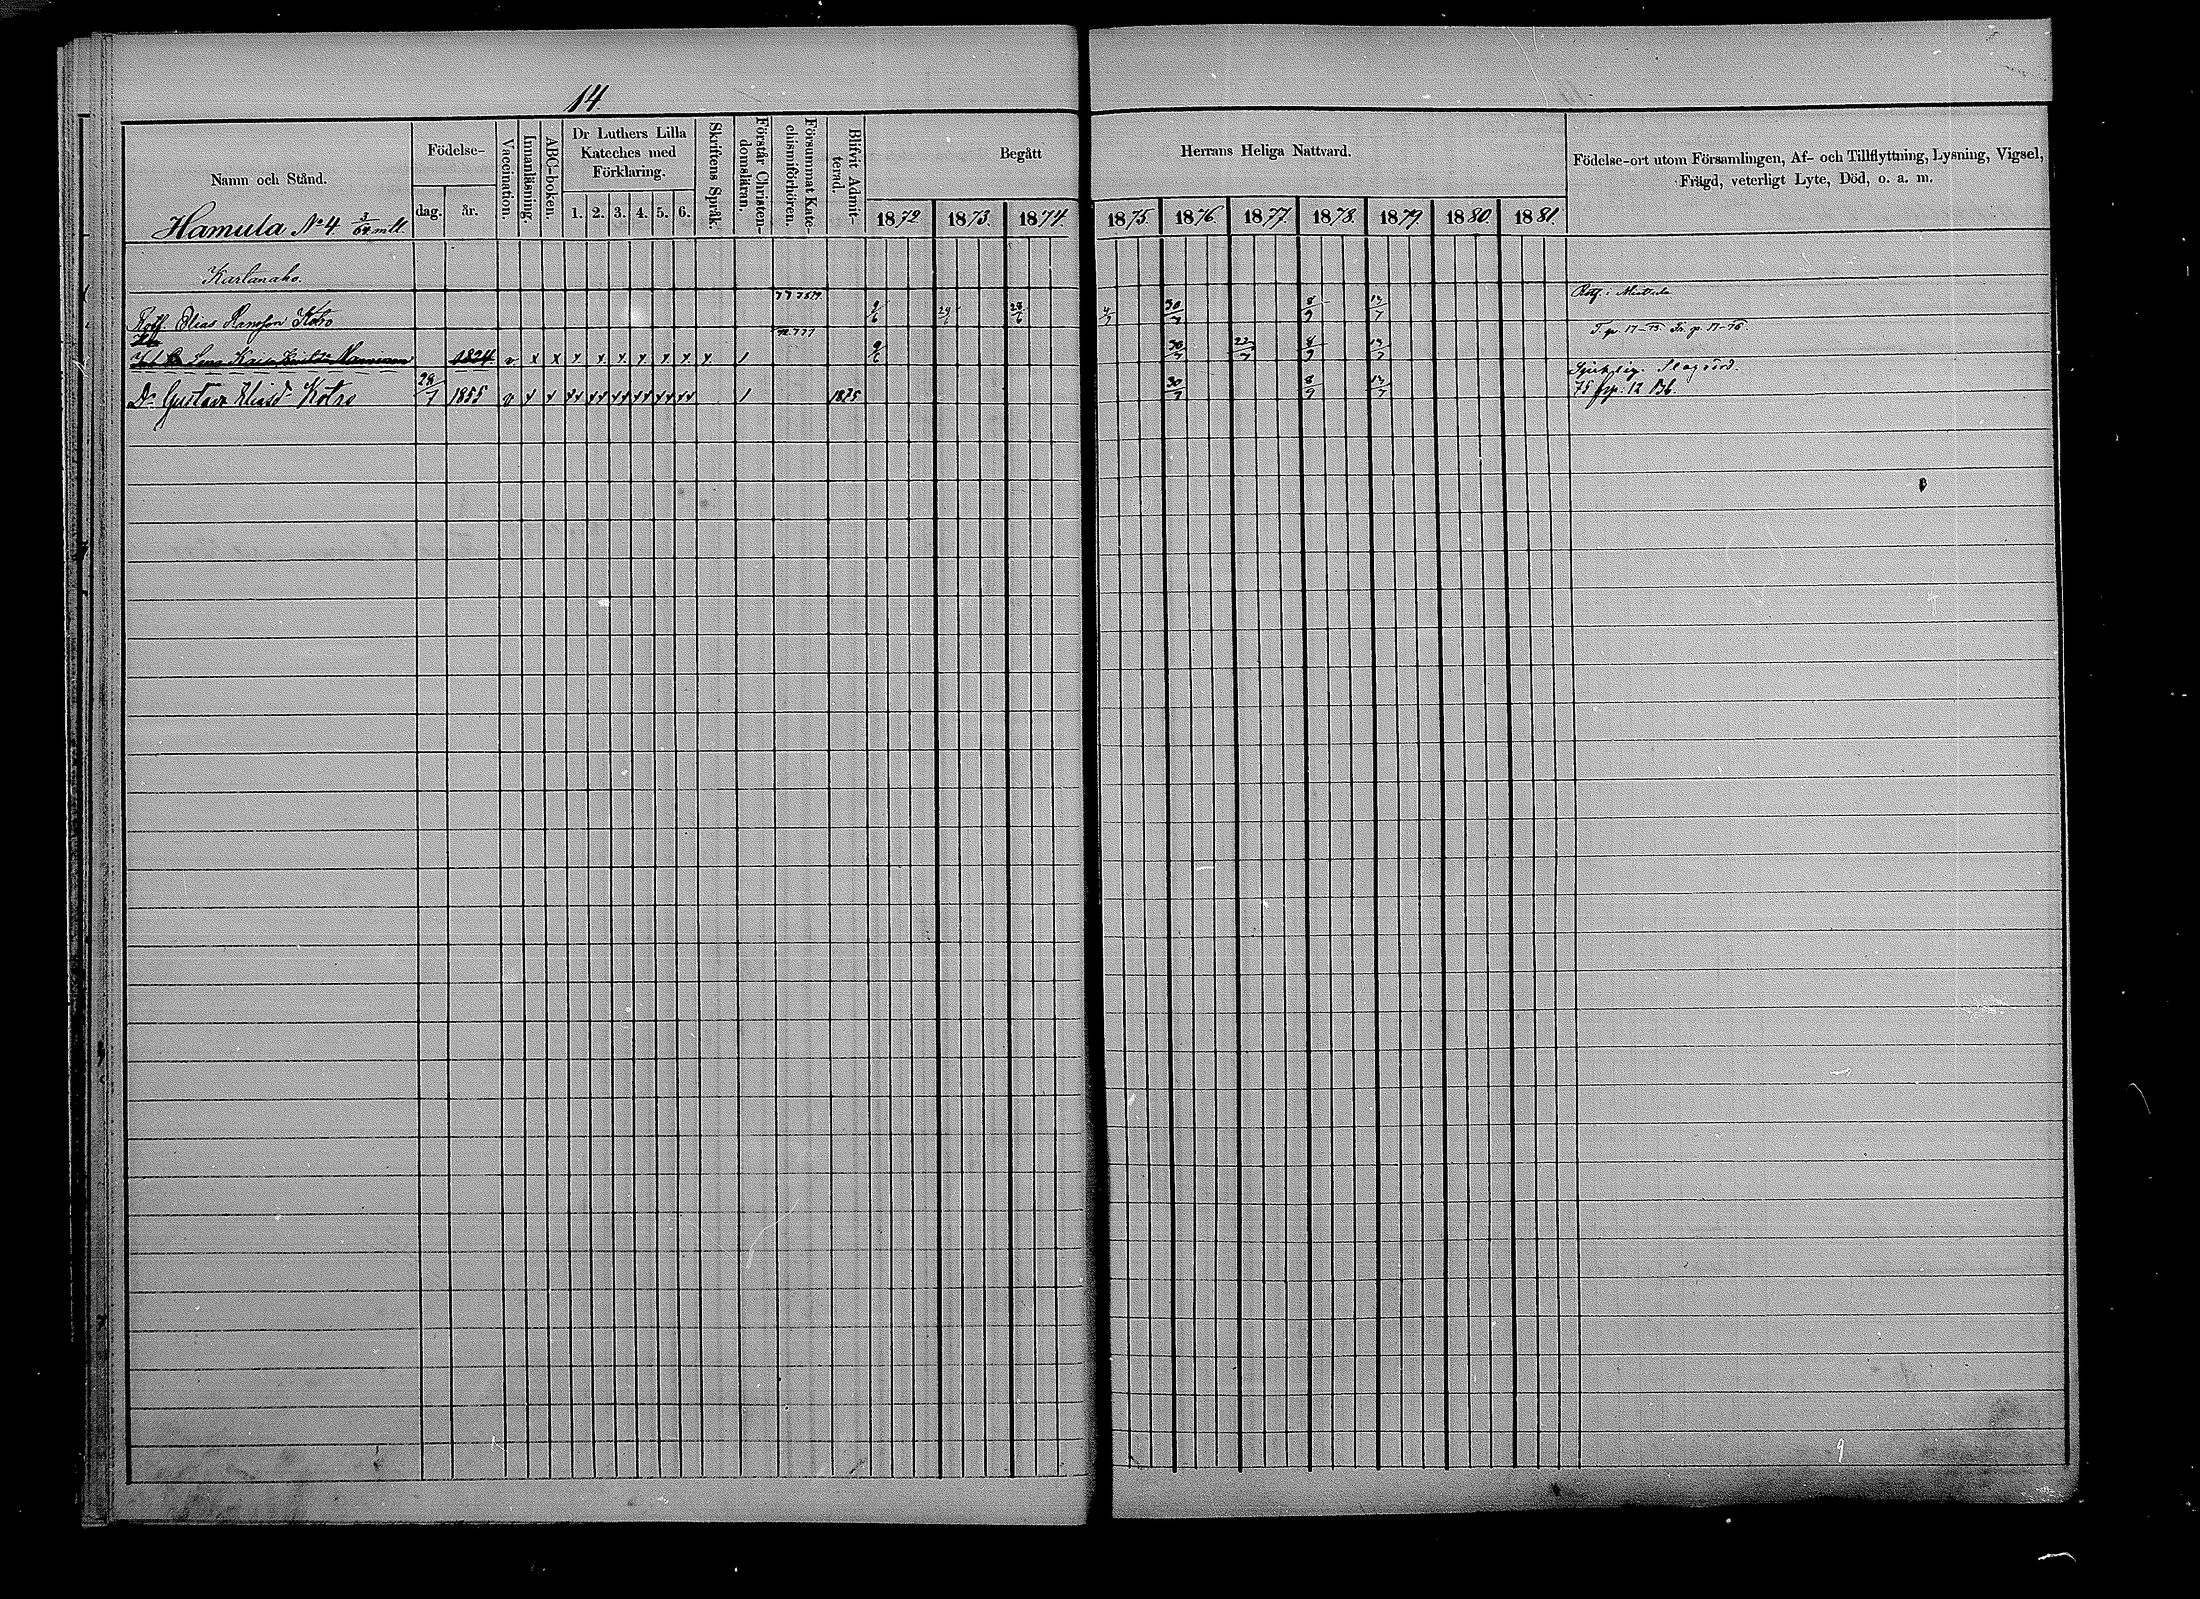 14.
Namn och Stånd.
Födelse-
dag.
år.
Vaccination.
Innanläsning.
ABC-boken.
Dr Luthers Lilla
Kateches med
Förklaring.
1. 2. 3. 4. 5. 6.
Skriftens Språk.
Förstår Christen-
domsläran.
Försummat Kate-
chismiförhören.
Blifvit Admit-
terad.
Begått
Herrans Heliga Nattvard.
1872 1873. 1874. 1875. 1876. 1877. 1878. 1879. 1880. 1881.
Födelse-ort utom Församlingen, Af- och Tillflyttning, Lysning, Vigsel,
Frägd, veterligt Lyte, Död, o. a. m.
Hamula No 4 3/64 mtl
Elias Kotro 9/6 24/6 30/7 8/9 13/7
Lena Kaisa 1824 v x x x x x x x x x 1 9/6 30/7 22/7 8/9 13/7
Dr Gustava Eliasdr Kotro 28/7 1855 v x x xx xx xx xx xx xx 1 1875 30/7 8/9 13/7
Sjuklig. Slagrörd.